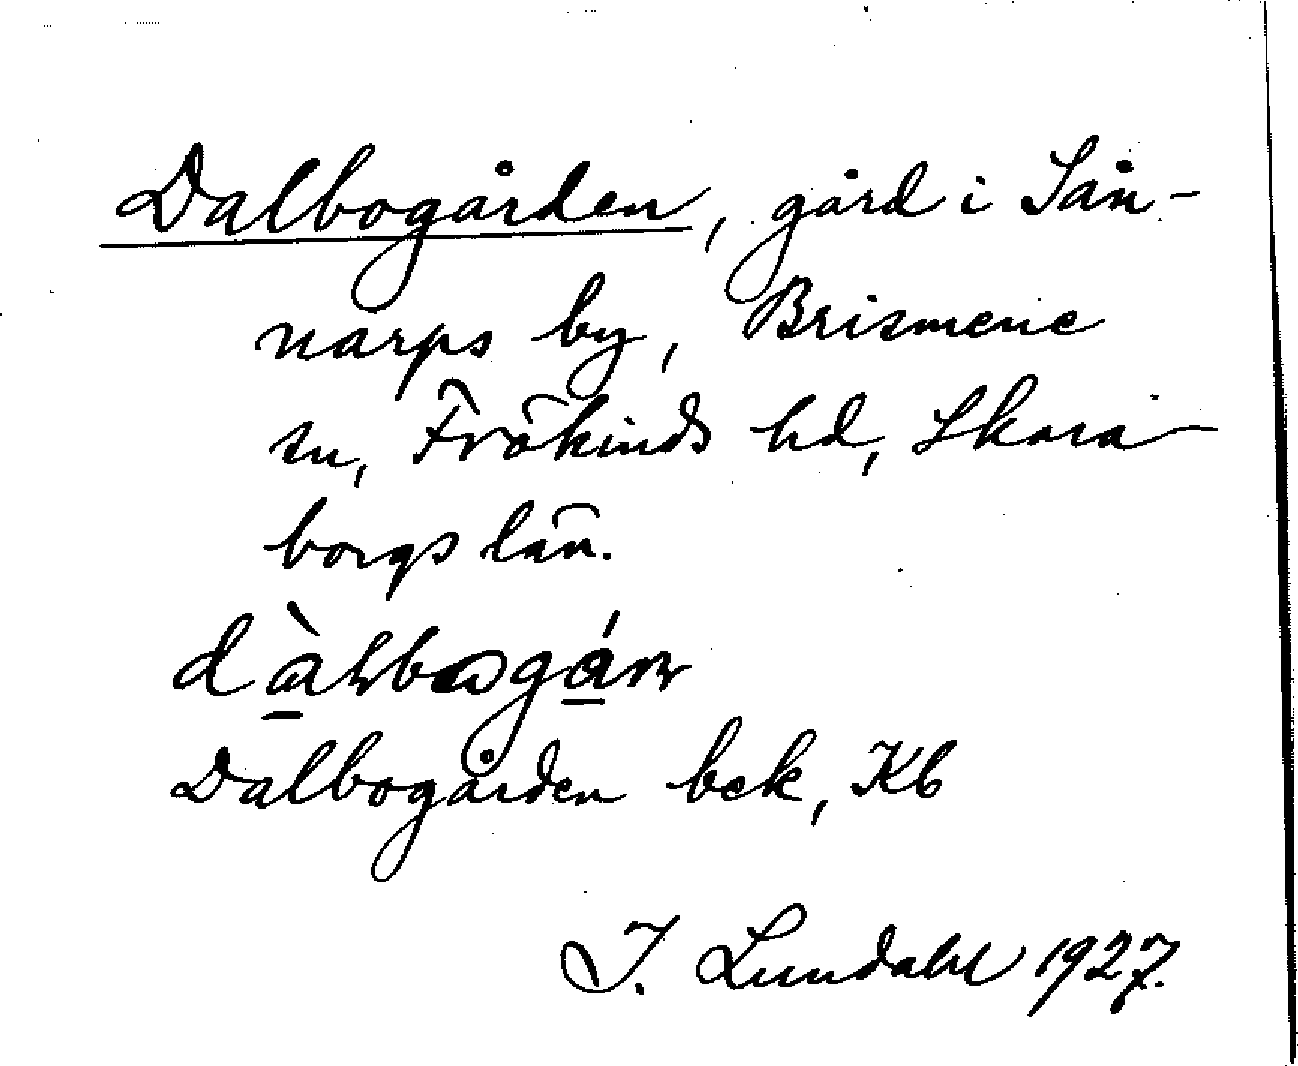 Dalbogården, gård i Sån-
narps by, Brismene
sn, Frökinds hd, Skara-
borgs län.
Dalbogården bek, Kb
I. Lundahl 1927.